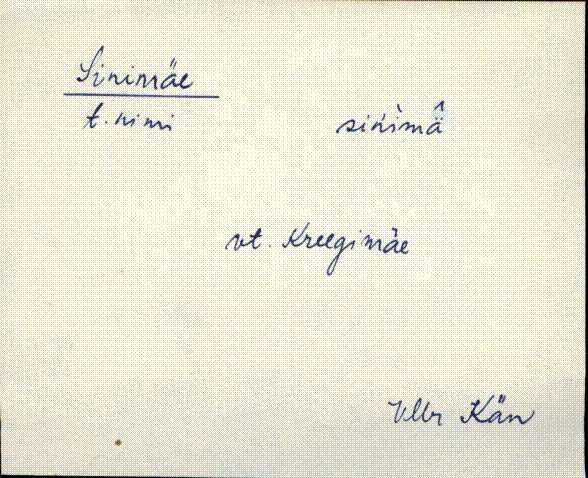 Sinimäe
t. nimi sinimä̂
vt. Kreegimäe
Vllr Kän